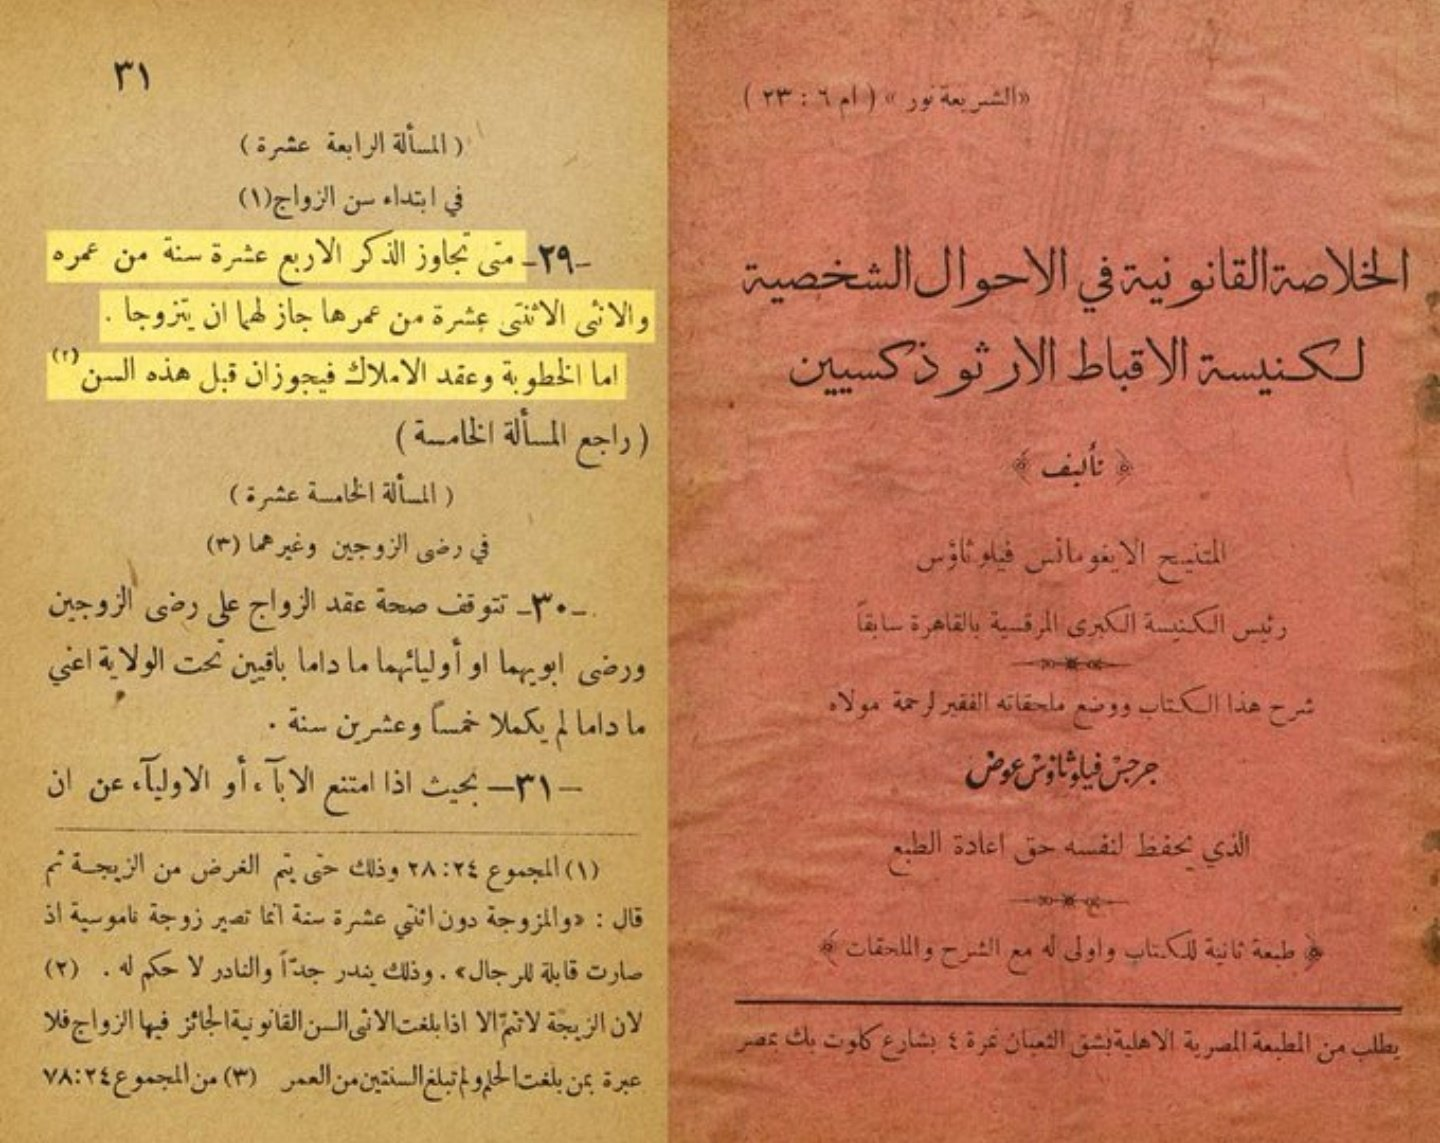 «الشريعة نور» ( ام ٦ : ٢٣ )
الخلاصة القانونية في الاحوال الشخصية
لكنيسة الاقباط الارثوذكسيين
﴿ تأليف ﴾
المتنيح الايغومانس فيلوثاؤس
رئيس الكنيسة الكبرى المرقسية بالقاهرة سابقاً
شرح هذا الكتاب ووضع ملحقاته الفقير لرحمة مولاه
جرجس فيلوثاوس عوض
الذي يحفظ لنفسه حق اعادة الطبع
﴿ طبعة ثانية للكتاب واولى له مع الشرح والملحقات ﴾
يطلب من المطبعة المصرية الاهلية بشق الثعبان نمرة ٤ بشارع كلوت بك بمصر
٣١
( المسألة الرابعة عشرة )
في ابتداء سن الزواج (١)
ـ٢٩ـ متى تجاوز الذكر الاربع عشرة سنة من عمره
والانثى الاثنتى عشرة من عمرها جاز لهما ان يتزوجا .
اما الخطوبة وعقد الاملاك فيجوزان قبل هذه السن (٢)
( راجع المسألة الخامسة )
( المسألة الخامسة عشرة )
في رضى الزوجين وغيرهما (٣)
ـ٣٠ـ تتوقف صحة عقد الزواج على رضى الزوجين
ورضى ابويهما او أوليائهما ما داما باقيين تحت الولاية اعني
ما داما لم يكملا خمساً وعشرين سنة .
—٣١— بحيث اذا امتنع الابآء أو الاوليآء عن ان
(١) المجموع ٢٤ : ٢٨ وذلك حتى يتم الغرض من الزيجة ثم
قال : «والمزوجة دون اثنتي عشرة سنة انما تصير زوجة ناموسية اذ
صارت قابلة للرجال» . وذلك يندر جدّاً والنادر لا حكم له . (٢)
لان الزيجة لا تتمّ الا اذا بلغت الانثى السن القانونية الجائز فيها الزواج فلا
عبرة بمن بلغت الحلم ولم تبلغ السنتين من العمر (٣) من المجموع ٢٤ : ٧٨